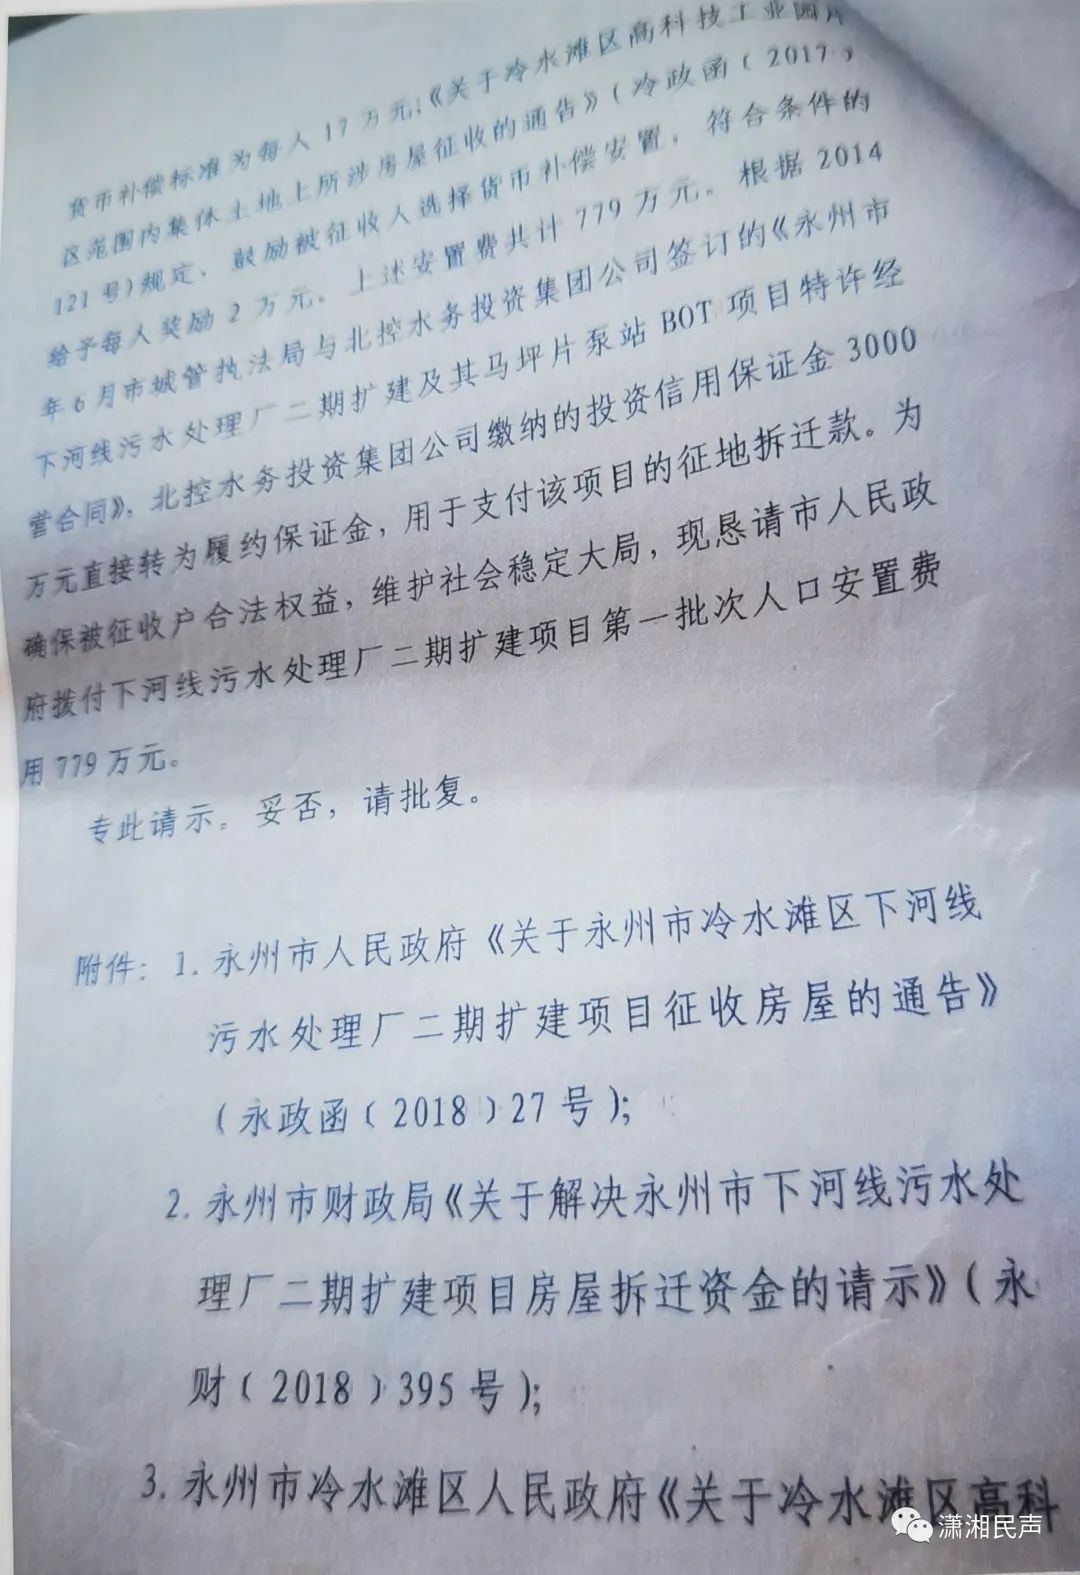 货币补偿标准为每人17万元;《关于冷水滩区高科技工业园片
区范围内集体土地上所涉房屋征收的通告》(冷政函〔2017〕
121号)规定、鼓励被征收人选择货币补偿安置,符合条件的
给予每人奖励2万元。上述安置费共计779万元。根据2014
年6月市城管执法局与北控水务投资集团公司签订的《永州市
下河线污水处理厂二期扩建及其马坪片泵站BOT项目特许经
营合同》,北控水务投资集团公司缴纳的投资信用保证金3000
万元直接转为履约保证金,用于支付该项目的征地拆迁款。为
确保被征收户合法权益,维护社会稳定大局,现恳请市人民政
府拨付下河线污水处理厂二期扩建项目第一批次人口安置费
用779万元。
专此请示。妥否,请批复。
附件:1.永州市人民政府《关于永州市冷水滩区下河线
污水处理厂二期扩建项目征收房屋的通告》
(永政函〔2018〕27号);
2.永州市财政局《关于解决永州市下河线污水处
理厂二期扩建项目房屋拆迁资金的请示》(永
财〔2018〕395号);
3.永州市冷水滩区人民政府《关于冷水滩区高科
潇湘民声